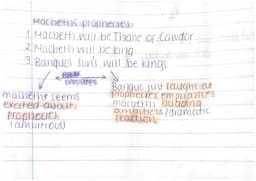 Macbeths prophecies:
1. Macbeth will be Thane of Cawdor
2. Macbeth will be king
3. Banquos sons will be kings
opposites
macbeth seems
excited about
prophecies
(ambitious)
Banquo just laughed at
prophecies, emphasises
macbeths building
ambitions/dramatic
reaction